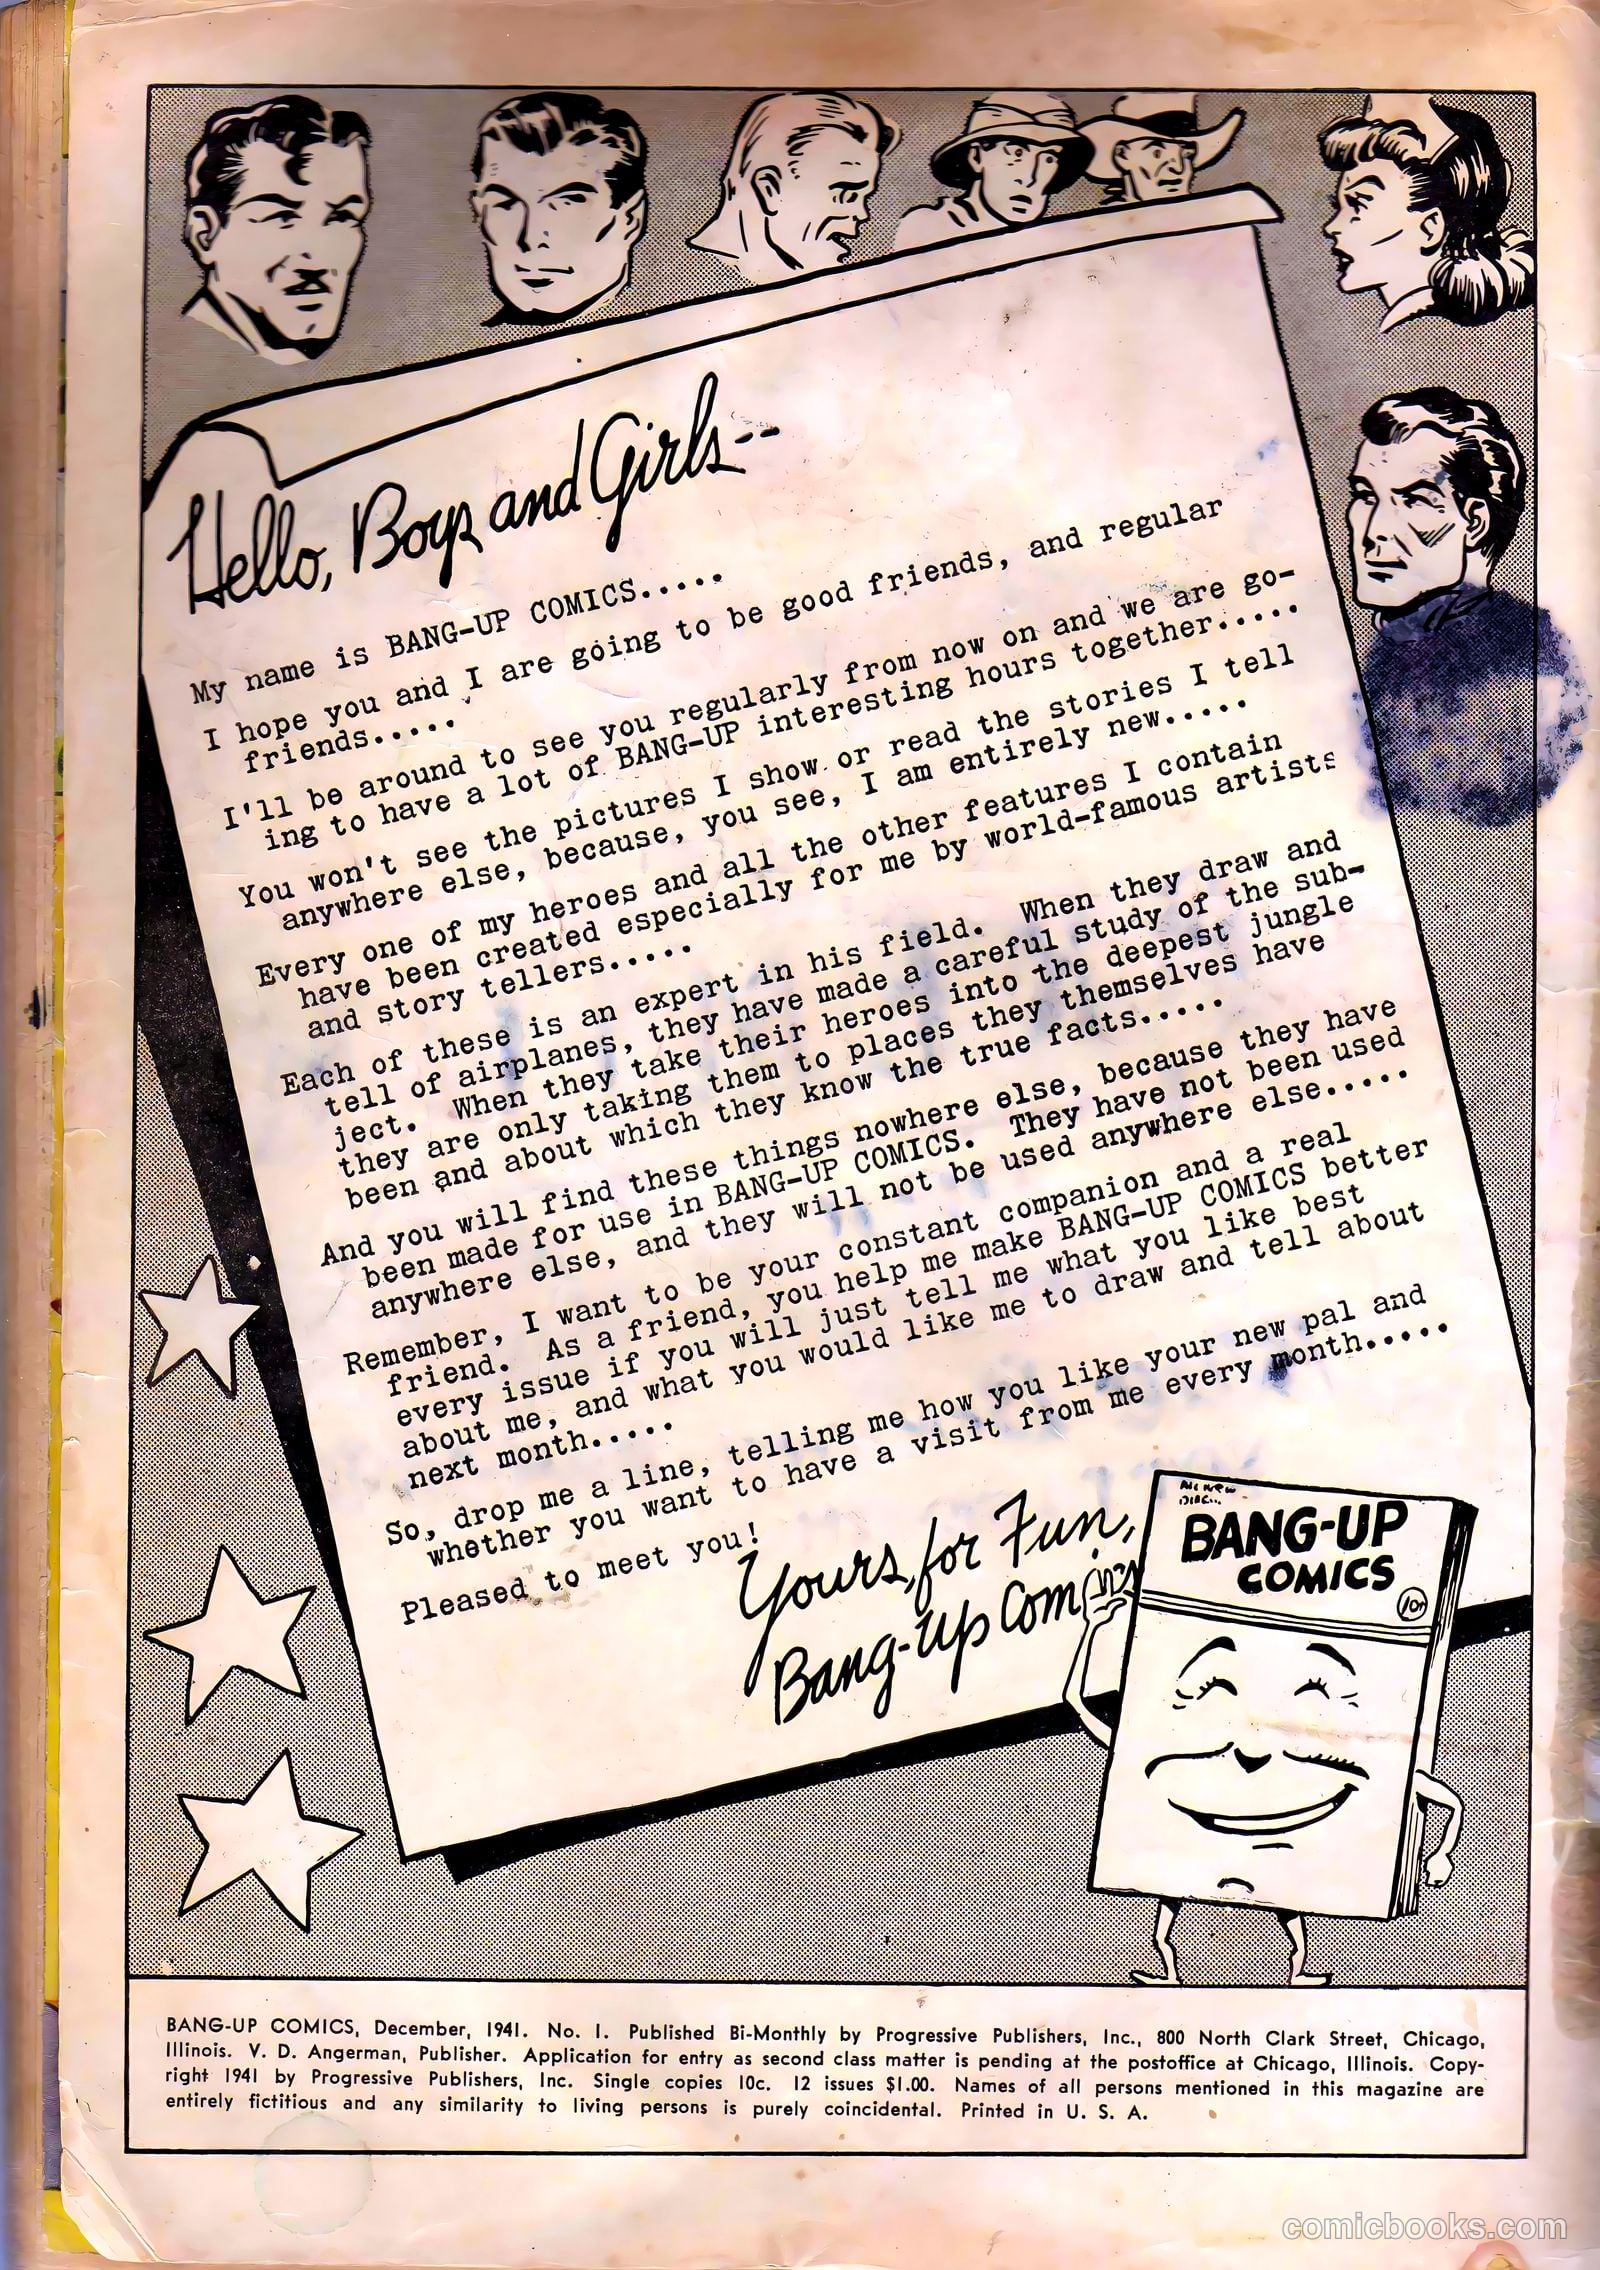 Hello, Boys and Girls--
My name is BANG-UP COMICS.....
I hope you and I are going to be good friends, and regular
friends.....
I'll be around to see you regularly from now on and we are go-
ing to have a lot of BANG-UP interesting hours together.....
You won't see the pictures I show or read the stories I tell
anywhere else, because, you see, I am entirely new.....
Every one of my heroes and all the other features I contain
have been created especially for me by world-famous artists
and story tellers.....
Each of these is an expert in his field. When they draw and
tell of airplanes, they have made a careful study of the sub-
ject. When they take their heroes into the deepest jungle
they are only taking them to places they themselves have
been and about which they know the true facts.....
And you will find these things nowhere else, because they have
been made for use in BANG-UP COMICS. They have not been used
anywhere else, and they will not be used anywhere else.....
Remember, I want to be your constant companion and a real
friend. As a friend, you help me make BANG-UP COMICS better
every issue if you will just tell me what you like best
about me, and what you would like me to draw and tell about
next month.....
So, drop me a line, telling me how you like your new pal and
whether you want to have a visit from me every month.....
Pleased to meet you!
Yours, for Fun,
Bang-Up Comics
BANG-UP
COMICS
10¢
BANG-UP COMICS, December, 1941. No. 1. Published Bi-Monthly by Progressive Publishers, Inc., 800 North Clark Street, Chicago,
Illinois. V. D. Angerman, Publisher. Application for entry as second class matter is pending at the postoffice at Chicago, Illinois. Copy-
right 1941 by Progressive Publishers, Inc. Single copies 10c. 12 issues $1.00. Names of all persons mentioned in this magazine are
entirely fictitious and any similarity to living persons is purely coincidental. Printed in U. S. A.
comicbooks.com